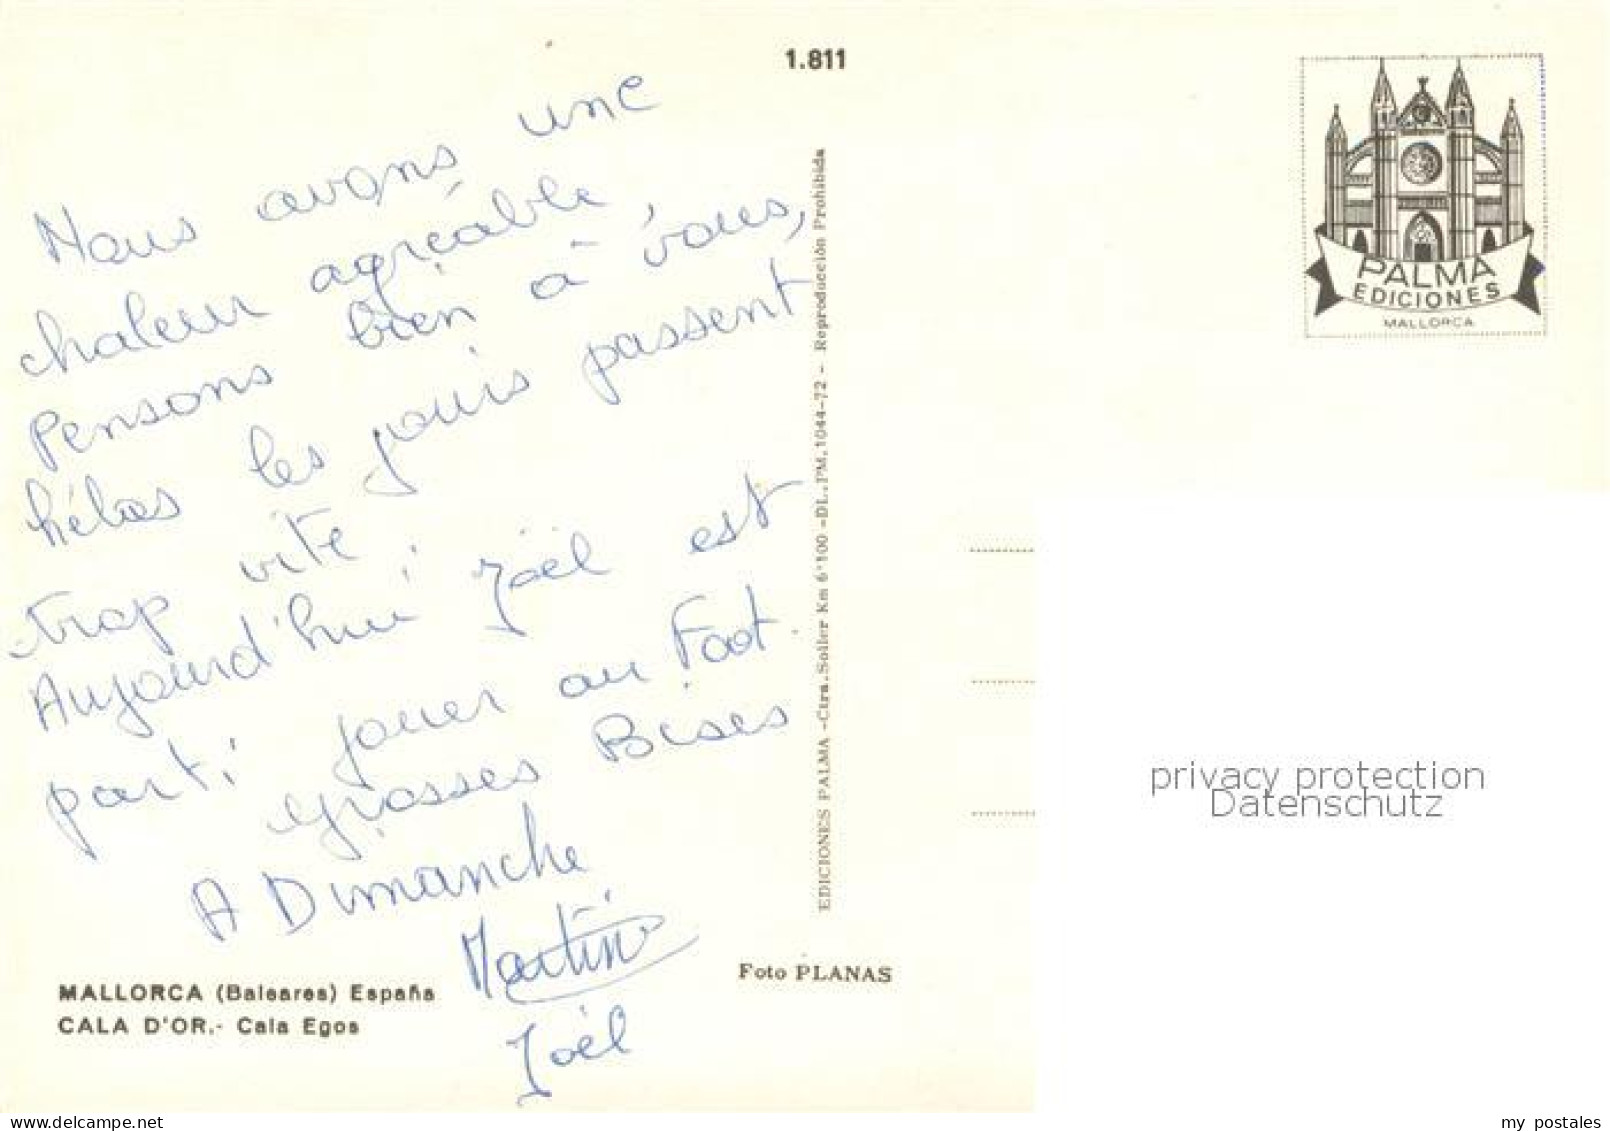 1.811
Nous avons une
chaleur agréable,
Pensons bien à vous,
hélas les jours passent
trop vite,
Aujourd'hui Joël est
parti jouer au Foot
grosses Bises
A Dimanche
Martine
Joël
MALLORCA (Baleares) España
CALA D'OR.- Cala Egos
Foto PLANAS
EDICIONES PALMA -Ctra. Soller Km 6'100 -DL. PM. 1044-72 - Reproducción Prohibida
PALMA
EDICIONES
MALLORCA
privacy protection
Datenschutz
my postales
delcampe.net